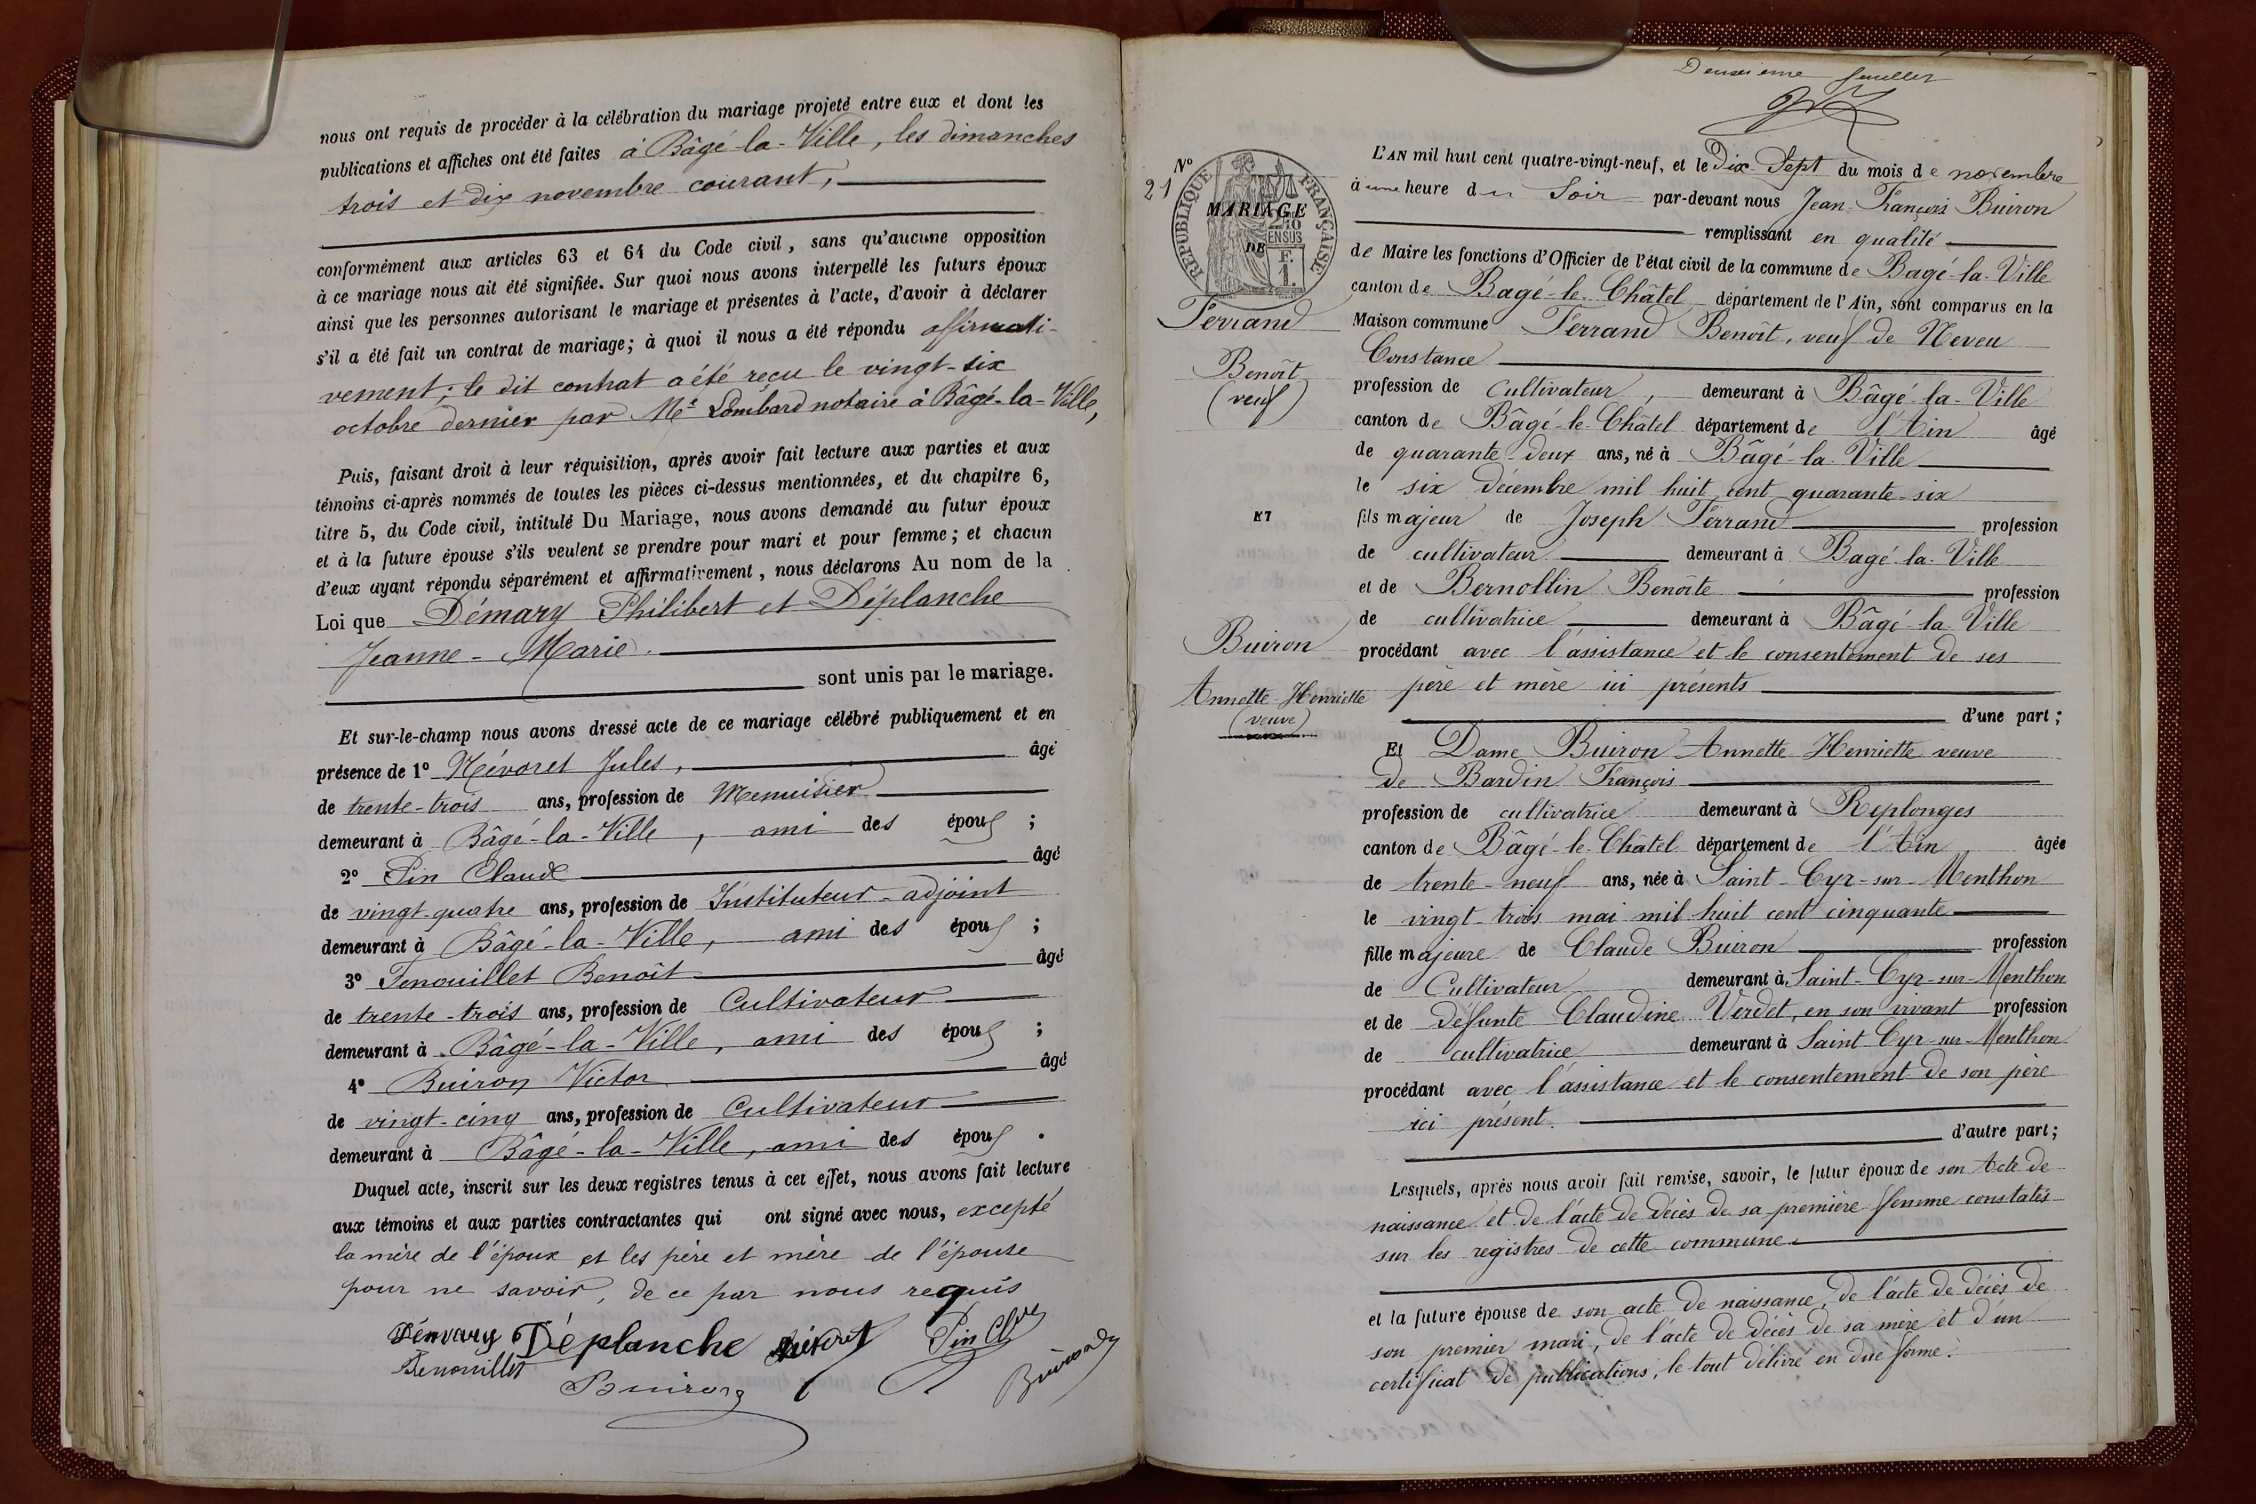 nous ont requis de procéder à la célébration du mariage projeté entre eux et dont les
publications et affiches ont été faites à Bâgé-la-Ville, les dimanches
trois et dix novembre courant,
conformément aux articles 63 et 64 du Code civil, sans qu'aucune opposition
à ce mariage nous ait été signifiée. Sur quoi nous avons interpellé les futurs époux
ainsi que les personnes autorisant le mariage et présentes à l'acte, d'avoir à déclarer
s'il a été fait un contrat de mariage; à quoi il nous a été répondu affirmati-
vement; le dit contrat a été reçu le vingt-six
octobre dernier par Me Lombard notaire à Bâgé-la-Ville,
Puis, faisant droit à leur réquisition, après avoir fait lecture aux parties et aux
témoins ci-après nommés de toutes les pièces ci-dessus mentionnées, et du chapitre 6,
titre 5, du Code civil, intitulé Du Mariage, nous avons demandé au futur époux
et à la future épouse s'ils veulent se prendre pour mari et pour femme; et chacun
d'eux ayant répondu séparément et affirmativement, nous déclarons Au nom de la
Loi que Démary Philibert et Déplanche
Jeanne-Marie.
sont unis par le mariage.
Et sur-le-champ nous avons dressé acte de ce mariage célébré publiquement et en
présence de 1° Névoret Jules, âgé
de trente-trois ans, profession de Menuisier
demeurant à Bâgé-la-Ville, ami des époux ;
2° Pin Claude âgé
de vingt-quatre ans, profession de Instituteur-adjoint
demeurant à Bâgé-la-Ville, ami des époux ;
3° Fenouillet Benoît âgé
de trente-trois ans, profession de Cultivateur
demeurant à Bâgé-la-Ville, ami des époux ;
4° Buiron Victor âgé
de vingt-cinq ans, profession de Cultivateur
demeurant à Bâgé-la-Ville, ami des époux .
Duquel acte, inscrit sur les deux registres tenus à cet effet, nous avons fait lecture
aux témoins et aux parties contractantes qui ont signé avec nous, excepté
la mère de l'époux et les père et mère de l'épouse
pour ne savoir, de ce par nous requis
Démary Déplanche Névoret Pin Cde
Fenouillet Buiron
Deuxième feuillet
N° 21
RÉPUBLIQUE FRANÇAISE
MARIAGE
DE
Ferrand
Benoît
(veuf)
ET
Buiron
Annette Henriette
(veuve)
L'AN mil huit cent quatre-vingt-neuf, et le Dix-Sept du mois de novembre
à une heure du Soir par-devant nous Jean-François Buiron
remplissant en qualité
de Maire les fonctions d'Officier de l'état civil de la commune de Bagé-la-Ville
canton de Bagé-le-Châtel département de l'Ain, sont comparus en la
Maison commune Ferrand Benoît, veuf de Neveu
Constance
profession de cultivateur, demeurant à Bâgé-la-Ville
canton de Bâgé-le-Châtel département de l'Ain âgé
de quarante-deux ans, né à Bâgé-la-Ville
le six décembre mil huit cent quarante-six
fils majeur de Joseph Ferrand profession
de cultivateur demeurant à Bagé-la-Ville
et de Bernollin Benoîte profession
de cultivatrice demeurant à Bâgé-la-Ville
procédant avec l'assistance et le consentement de ses
père et mère ici présents
d'une part ;
Et Dame Buiron Annette Henriette veuve
de Bardin François
profession de cultivatrice demeurant à Replonges
canton de Bâgé-le-Châtel département de l'Ain âgée
de trente-neuf ans, née à Saint-Cyr-sur-Menthon
le vingt-trois mai mil huit cent cinquante
fille majeure de Claude Buiron profession
de Cultivateur demeurant à Saint-Cyr-sur-Menthon
et de défunte Claudine Verdet, en son vivant profession
de cultivatrice demeurant à Saint Cyr-sur-Menthon
procédant avec l'assistance et le consentement de son père
ici présent.
d'autre part ;
Lesquels, après nous avoir fait remise, savoir, le futur époux de son Acte de
naissance et de l'acte de décès de sa première femme constatés
sur les registres de cette commune.
et la future épouse de son acte de naissance, de l'acte de décès de
son premier mari, de l'acte de décès de sa mère et d'un
certificat de publications, le tout délivré en due forme.